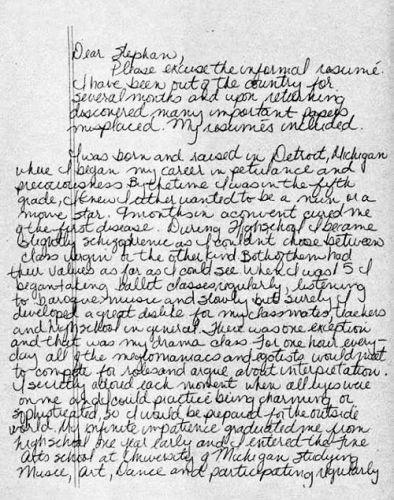 Dear Stephan,
Please excuse the informal resumé.
I have been out of the country for
several months and upon returning
discovered many important papers
misplaced. My resumés included.
I was born and raised in Detroit, Michigan
where I began my career in petulance and
preciousness. By the time I was in the fifth
grade, I knew I either wanted to be a nun or a
movie star. 9 months in a convent cured me
of the first disease. During high school I became
slightly schizophrenic as I couldn't chose between
class virgin or the other kind. Both of them had
their values as far as I could see. When I was 15 I
began taking ballet classes regularly, listening
to baroque music and slowly but surely I
developed a great dislike for my classmates, teachers
and high school in general. There was one exception
and that was my drama class. For one hour every-
day all of the meglomaniacs and egotists would meet
to compete for roles and argue about interpretation.
I secretly adored each moment when all eyes were
on me and I could practice being charming or
sophisticated, so I would be prepared for the outside
world. My infinite impatience graduated me from
high school one year early and I entered the Fine
Arts school at University of Michigan studying
Music, Art, Dance and participating regularly